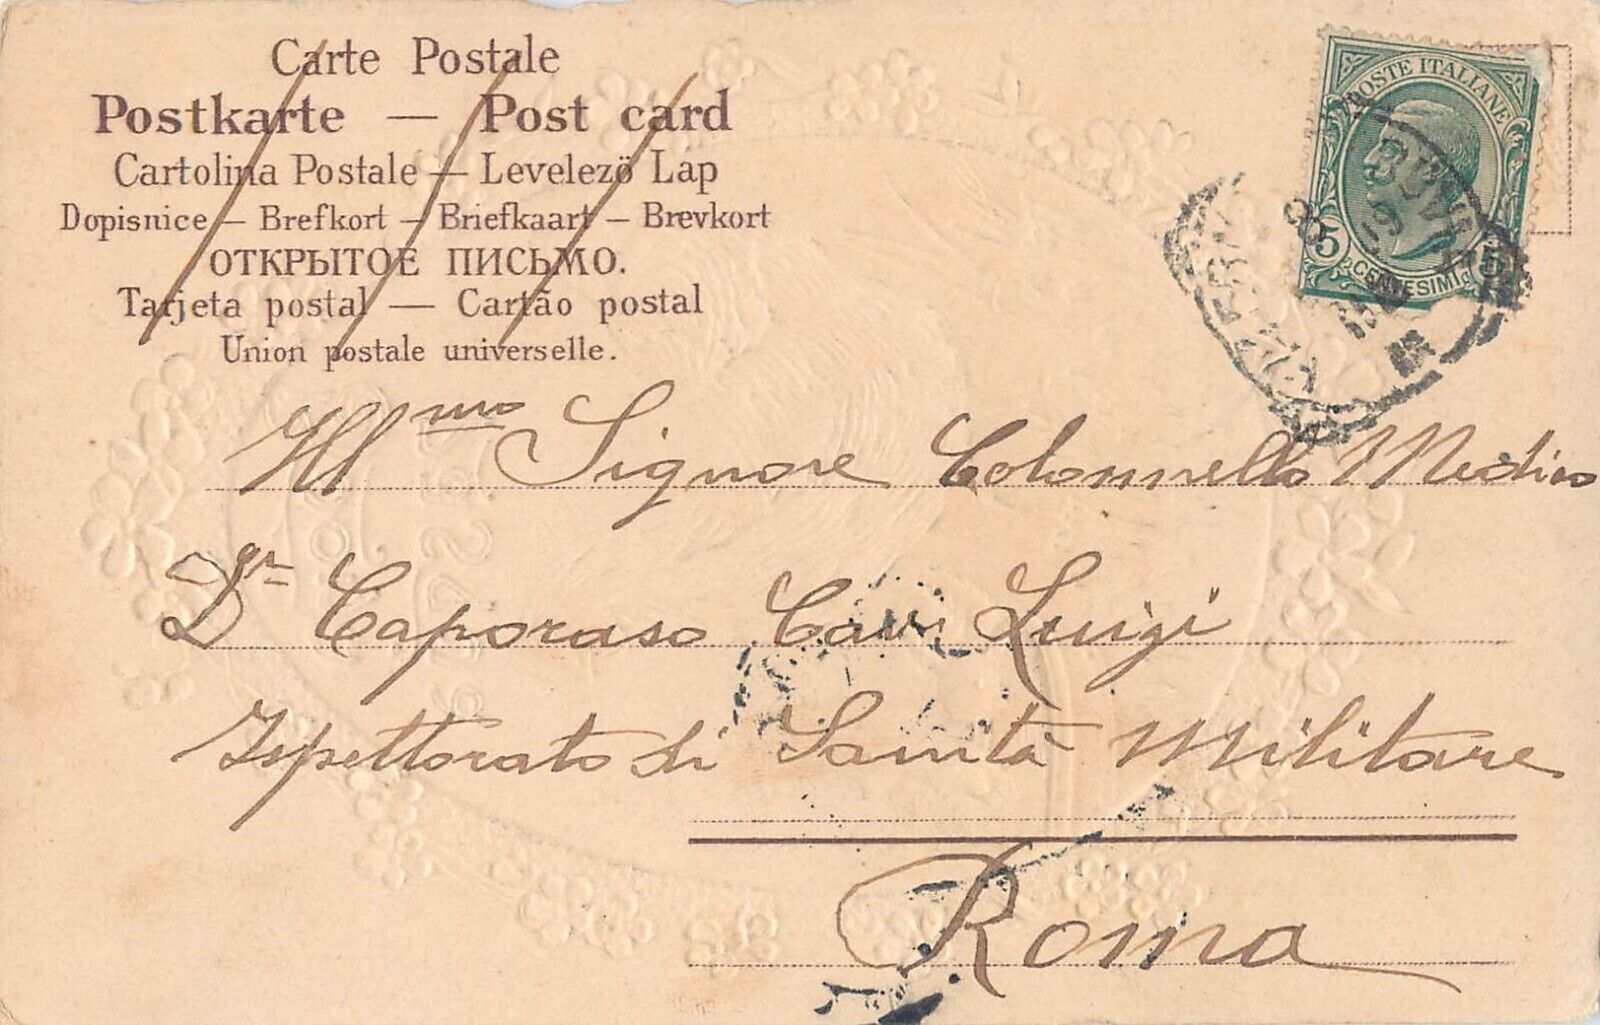 Carte Postale
Postkarte — Post card
Cartolina Postale — Levelezö Lap
Dopisnice — Brefkort — Briefkaart — Brevkort
ОТКРЫТОЕ ПИСЬМО.
Tarjeta postal — Cartão postal
Union postale universelle.
POSTE ITALIANE
5 CENTESIMI 5
Ill mo Signore Colonnello Medico
Dr Caporaso Cav Luigi
Ispettorato di Sanità Militare
Roma